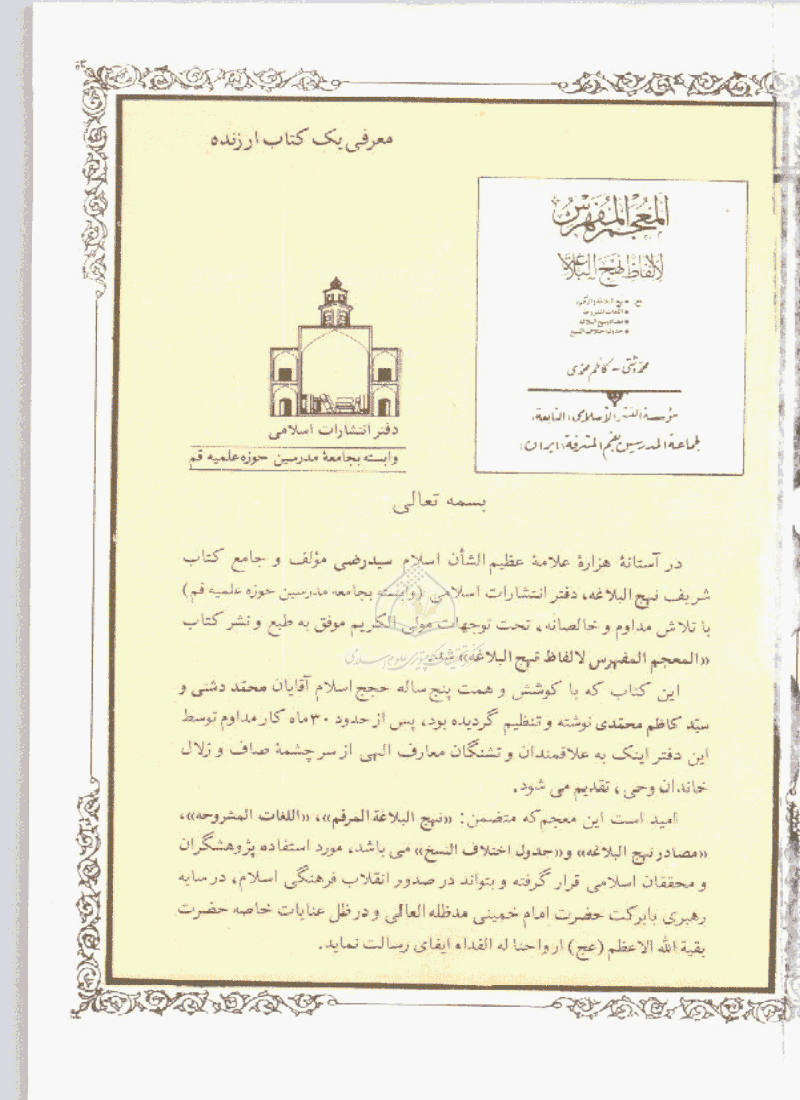 معرفی یک کتاب ارزنده
المعجم المفهرس
لالفاظ نهج البلاغة
محمد دشتی - کاظم محمدی
مؤسسة النشر الاسلامی (التابعة)
لجماعة المدرسین بقم المشرفة (ایران)
دفتر انتشارات اسلامی
وابسته بجامعهٔ مدرسین حوزه علمیه قم
بسمه تعالی
در آستانهٔ هزارهٔ علامهٔ عظیم الشأن اسلام سیدرضی مؤلف و جامع کتاب
شریف نهج البلاغه، دفتر انتشارات اسلامی (وابسته بجامعه مدرسین حوزه علمیه قم)
با تلاش مداوم و خالصانه، تحت توجهات مولی الکریم موفق به طبع و نشر کتاب
«المعجم المفهرس لالفاظ نهج البلاغه» شد.
این کتاب که با کوشش و همت پنج ساله حجج اسلام آقایان محمّد دشتی و
سیّد کاظم محمّدی نوشته و تنظیم گردیده بود، پس از حدود ۳۰ ماه کار مداوم توسط
این دفتر اینک به علاقمندان و تشنگان معارف الهی از سرچشمهٔ صاف و زلال
خاندان وحی، تقدیم می شود.
امید است این معجم که متضمن: «نهج البلاغة المرقم»، «اللغات المشروحه»،
«مصادر نهج البلاغه» و «جدول اختلاف النسخ» می باشد، مورد استفاده پژوهشگران
و محققان اسلامی قرار گرفته و بتواند در صدور انقلاب فرهنگی اسلام، در سایه
رهبری بابرکت حضرت امام خمینی مدظله العالی و در ظل عنایات خاصه حضرت
بقیة الله الاعظم (عج) ارواحنا له الفداء ایفای رسالت نماید.